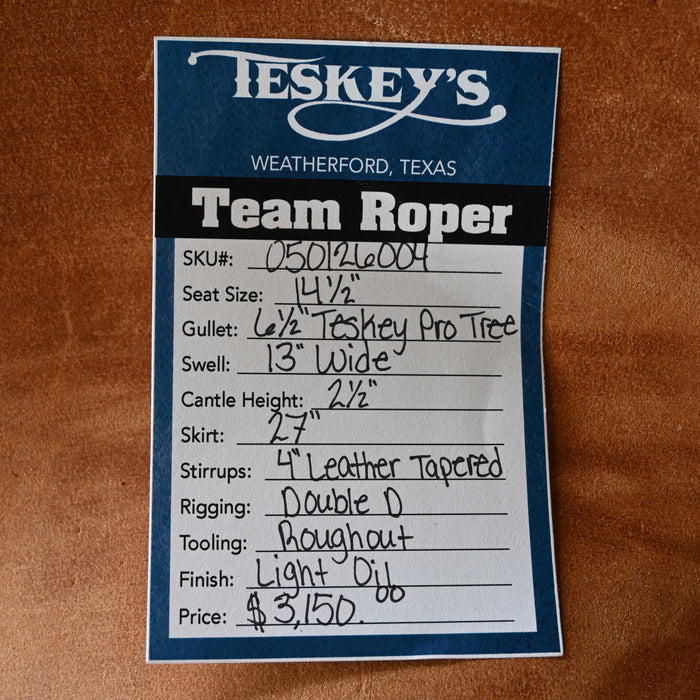 TESKEY'S
WEATHERFORD, TEXAS
Team Roper
SKU#: 050126004
Seat Size: 14½"
Gullet: 6½" Teskey Pro Tree
Swell: 13" Wide
Cantle Height: 2½"
Skirt: 27"
Stirrups: 4" Leather Tapered
Rigging: Double D
Tooling: Roughout
Finish: Light Oil
Price: $3,150.00